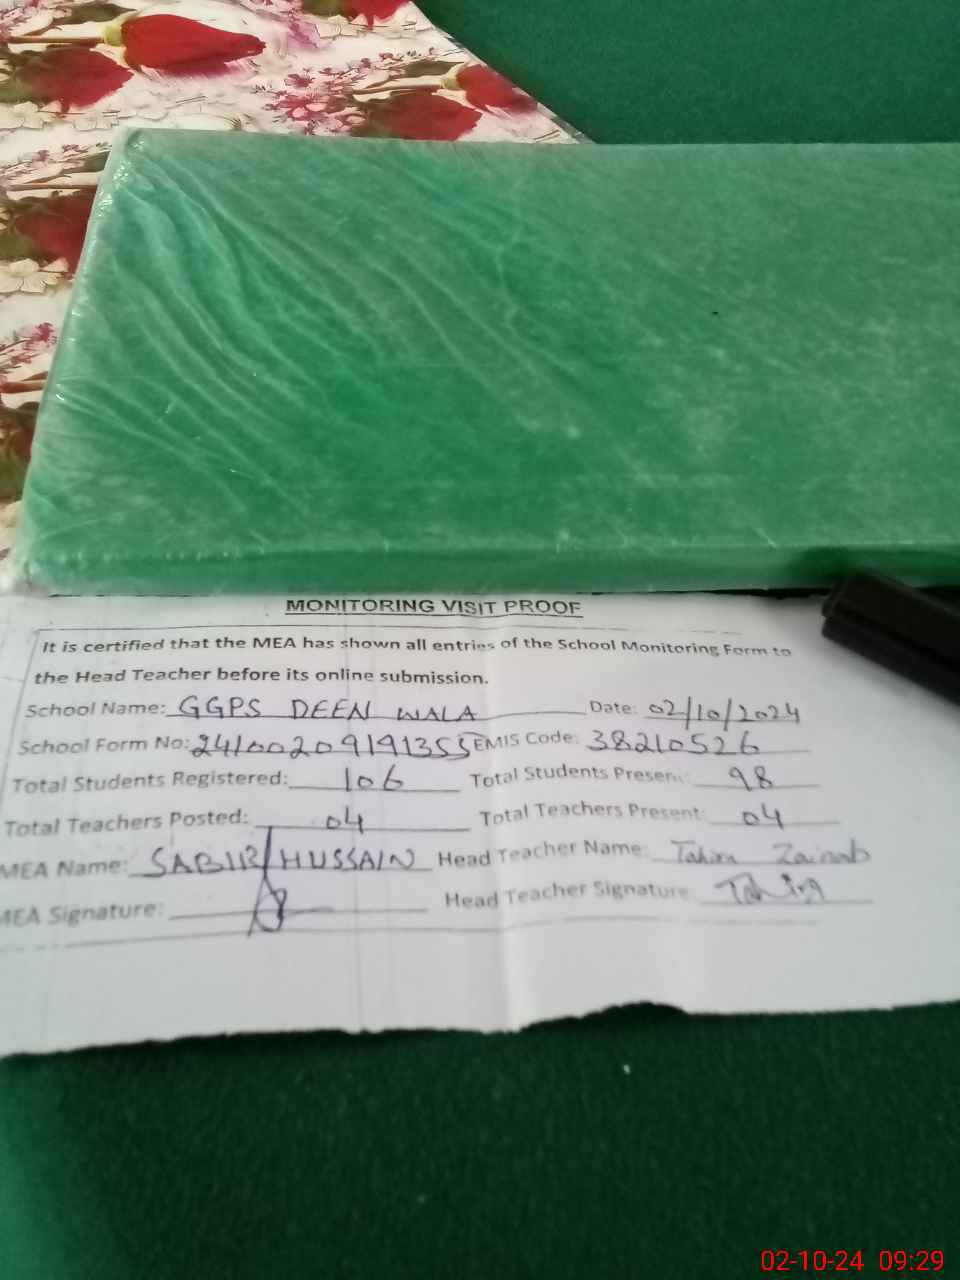 MONITORING VISIT PROOF
It is certified that the MEA has shown all entries of the School Monitoring Form to
the Head Teacher before its online submission.
School Name: GGPS DEEN WALA Date: 02/10/2024
School Form No: 24100209191355 EMIS Code: 38210526
Total Students Registered: 106 Total Students Present: 98
Total Teachers Posted: 04 Total Teachers Present: 04
MEA Name: SABIR HUSSAIN Head Teacher Name: Tahira Zainab
MEA Signature: Head Teacher Signature Tahira
02-10-24 09:29